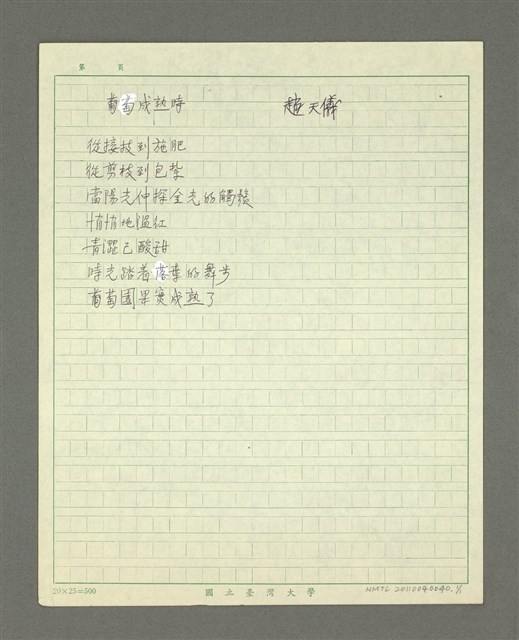 第　頁
葡萄成熟時　趙天儀
從接枝到施肥
從剪枝到包紮
當陽光伸探金光的觸鬚
悄悄地溫紅
青澀已酸甜
時光踏着落葉的舞步
葡萄園果實成熟了
20×25=500　國立臺灣大學　NMTL 20110040040.1/1